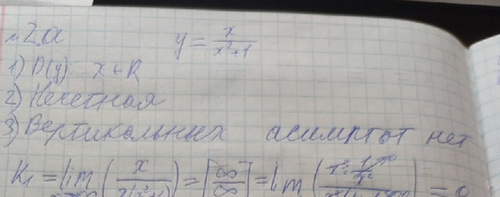 2.а y = x/(x²+1)
1) D(y) x ∈ R
2) Нечетная
3) Вертикальных асимптот нет
K₁ = lim (x/(x(x²+1))) = [∞/∞] = lim = 0